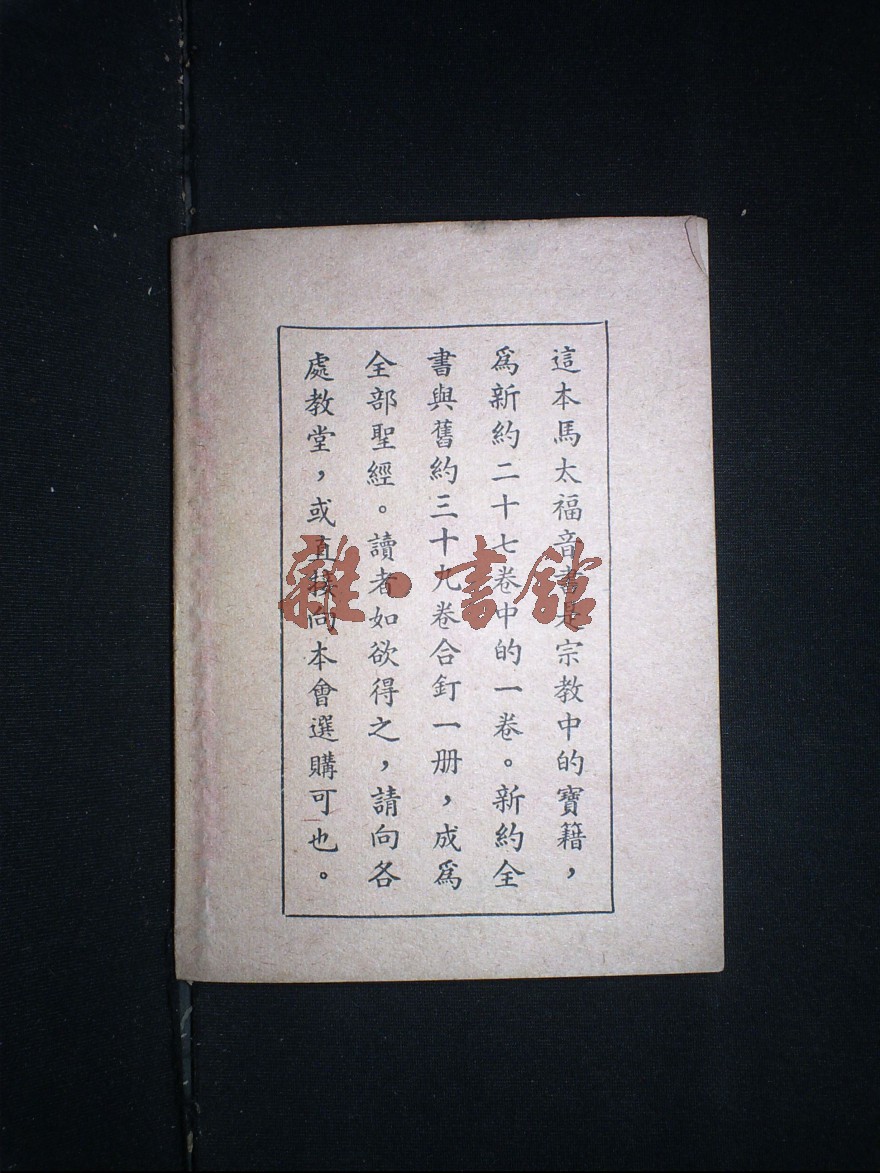 這本馬太福音書是宗教中的寶籍，
爲新約二十七卷中的一卷。新約全
書與舊約三十九卷合釘一册，成爲
全部聖經。讀者如欲得之，請向各
處教堂，或直接向本會選購可也。
雜·書館